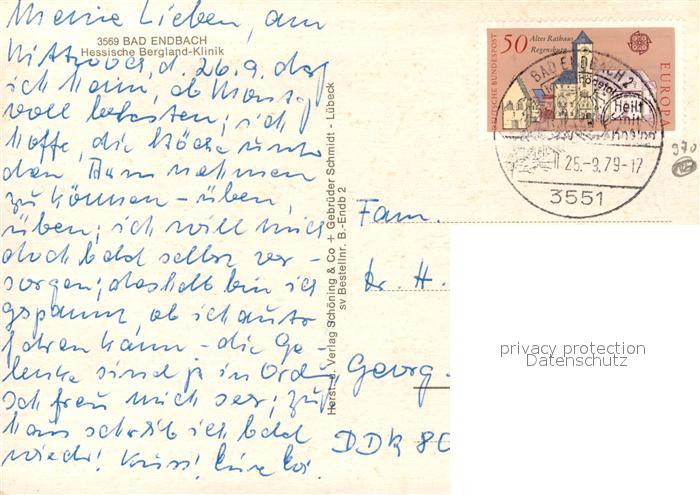 Meine Lieben, am
3569 BAD ENDBACH
Hessische Bergland-Klinik
Mittwoch, d. 26.9. darf
ich dann, ob
voll belasten; ich
hoffe, die Stöcke unter
den Arm nehmen
zu können - üben,
üben; ich will mich
doch bald selbst ver-
sorgen; deshalb bin ich
gespannt ob ich auto
fahren kann - die Ge-
lenke sind ja in Ordng
ich freu mich sehr; zu
haus schreib ich bald
wieder! Kuss! Eure
Herst. u. Verlag Schöning & Co + Gebrüder Schmidt - Lübeck
sv Bestellnr. B.-Endb 2
50 Altes Rathaus
Regensburg
DEUTSCHE BUNDESPOST
EUROPA
BAD ENDBACH 2
Heilt
mit
Kneipp
25.-9.79-17
3551
970
Fam.
Dr. H.
Georg-
DDR 80
privacy protection
Datenschutz